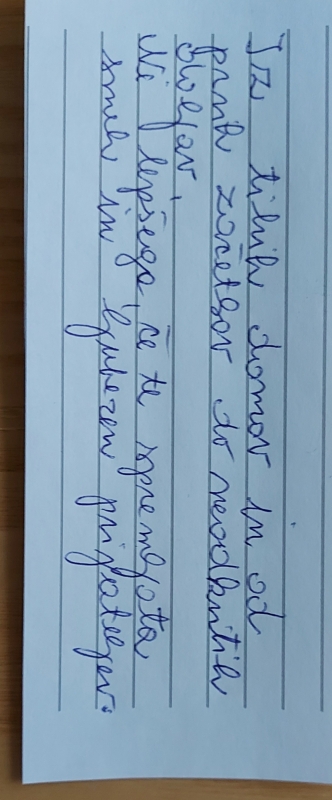 Iz tihih domov in od
prvih začetkov do neodkritih
boljav,
Ni lepšega, če te spremljata
smeh in ljubezen prijateljev.